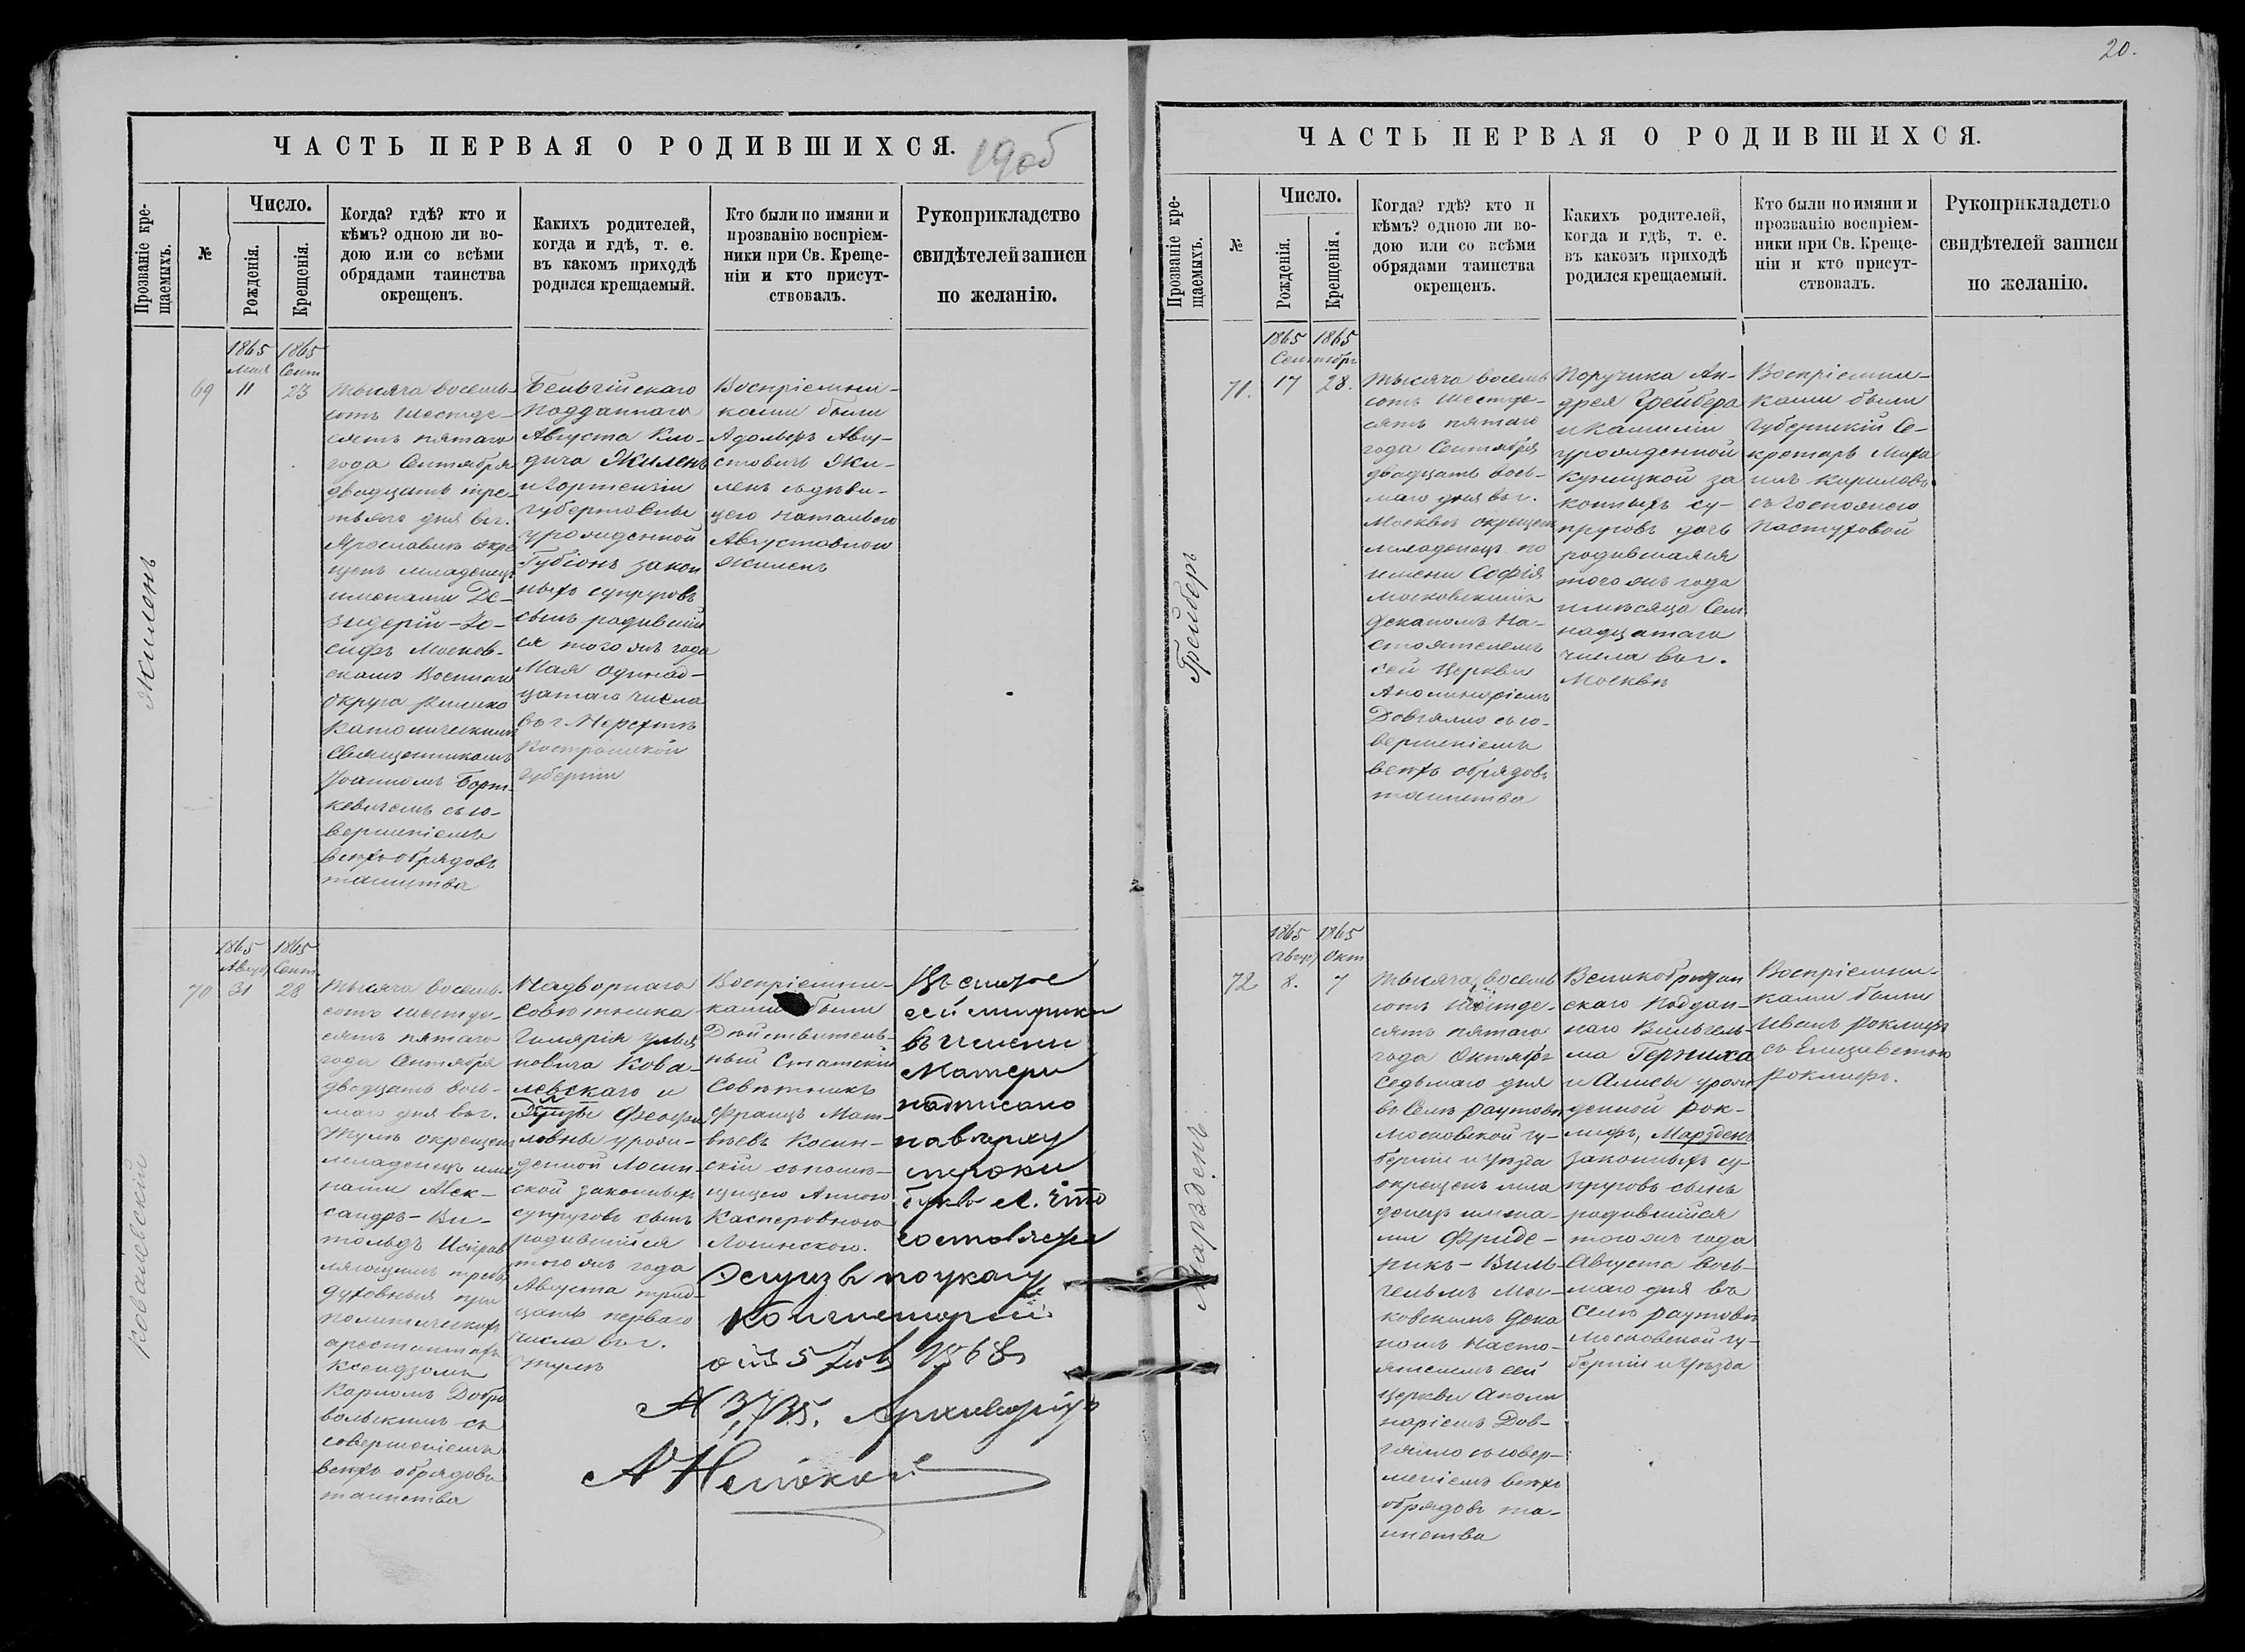 20.
ЧАСТЬ ПЕРВАЯ О РОДИВШИХСЯ.
19об
Прозваніе кре-
щаемыхъ.
№
Число.
Рожденія.
Крещенія.
Когда? гдѣ? кто и
кѣмъ? одною ли во-
дою или со всѣми
обрядами таинства
окрещенъ.
Какихъ родителей,
когда и гдѣ, т. е.
въ какомъ приходѣ
родился крещаемый.
Кто были по имяни и
прозванію воспріем-
ники при Св. Креще-
ніи и кто присут-
ствовалъ.
Рукоприкладство
свидѣтелей записи
по желанію.
Жиленъ
69
1865
Мая
11
1865
Сент
23
Тысяча восемь-
сотъ шестьде-
сятъ пятаго
года Сентября
двадцать тре-
тьяго дня въ г.
Ярославлѣ окре
щенъ младенецъ
именами Де-
зидерій-Іо-
сифъ Москов-
скаго Военнаго
округа Римско
Католическимъ
Священникомъ
Іоанномъ Борт-
кевичемъ съ со-
вершеніемъ
всѣхъ обрядовъ
таинства
Бельгійскаго
подданнаго
Августа Кло-
дича Жиленъ
и Гортензіи
Губертовны
урожденной
Губіонъ закон
ныхъ супруговъ
сынъ родившій
ся того же года
Мая одинад-
цатаго числа
въ г. Нерехтѣ
Костромской
Губерніи
Воспріемни-
ками были
Адольфъ Авгу-
стовичъ Жи-
ленъ съ дѣви-
цею Натальею
Августовною
Жиленъ
Ковалевскій
70
1865
Август
31
1865
Сент
28
Тысяча восемь-
сотъ шестьде-
сятъ пятаго
года Сентября
двадцать вось-
маго дня въ г.
Тулѣ окрещенъ
младенецъ име
нами Алек-
сандръ-Ви-
тольдъ Исправ
ляющимъ требы
духовныя при
политическихъ
арестантахъ
Ксендзомъ
Карломъ Добро
вольскимъ съ
совершеніемъ
всѣхъ обрядовъ
таинства
Надворнаго
Совѣтника
Гилярія Улья
новича Кова-
левскаго и
Феофи
ловны урож-
денной Лосин-
ской законныхъ
супруговъ сынъ
родившійся
того же года
Августа трид-
цать перваго
числа въ г.
Тулѣ
Воспріемни-
ками были
Дѣйствитель-
ный Статскій
Совѣтникъ
Францъ Мат-
вѣевъ Косин-
скій съ помѣ-
щицею Анною
Касперовною
Лосинскою.
Въ статье
сей метрики
въ имени
Матери
надписано
на верху
строки
буква Л. Что
составляетъ
Делуизы по указу
Консисторіи
отъ 5 1868
№ 3735. Архиваріусъ
ЧАСТЬ ПЕРВАЯ О РОДИВШИХСЯ.
Прозваніе кре-
щаемыхъ.
№
Число.
Рожденія.
Крещенія.
Когда? гдѣ? кто и
кѣмъ? одною ли во-
дою или со всѣми
обрядами таинства
окрещенъ.
Какихъ родителей,
когда и гдѣ, т. е.
въ какомъ приходѣ
родился крещаемый.
Кто были по имяни и
прозванію воспріем-
ники при Св. Креще-
ніи и кто присут-
ствовалъ.
Рукоприкладство
свидѣтелей записи
по желанію.
Грейберъ
71.
1865 1865
Сентябрь
17
28.
Тысяча восемь
сотъ шестьде-
сятъ пятаго
года Сентября
двадцать вось-
маго дня въ г.
Москвѣ окрещенъ
младенецъ по
имени Софія
Московскимъ
Деканомъ На-
стоятелемъ
сей Церкви
Аполинаріемъ
Довгялло съ со-
вершеніемъ
всѣхъ обрядовъ
таинства
Поручика Ан-
дрея Грейбера
и Камиліи
урожденной
Куницкой за
конныхъ су-
пруговъ дочь
родившаяся
того же года
и мѣсяца Сем
надцатаго
числа въ г.
Москвѣ
Воспріемни-
ками были
Губернскій Се-
кретарь Миха
илъ Кириловъ
съ Госпожею
Пастуховой
Марзденъ
72
1865
Август
8.
1865
Окт
7
Тысяча восемь
сотъ шестьде-
сятъ пятаго
года Октября
седьмаго дня
въ Селѣ Раутовѣ
Московской гу-
берніи и уѣзда
окрещенъ мла
денецъ имена-
ми Фриде-
рикъ-Виль-
гельмъ Мос-
ковскимъ Дека
номъ Насто-
ятелемъ сей
Церкви Аполи
наріемъ Дов-
гялло съ совер-
шеніемъ всѣхъ
обрядовъ та-
инства
Великобритан
скаго поддан-
наго Вильгель-
ма Герниха
и Алисы урож
денной Рок-
лифъ, Марзденъ
законныхъ су-
пруговъ сынъ
родившійся
того же года
Августа вось-
маго дня въ
Селѣ Раутовѣ
Московской гу-
берніи и уѣзда
Воспріемни-
ками были
Иванъ Роклифъ
съ Елизаветою
Роклифъ.